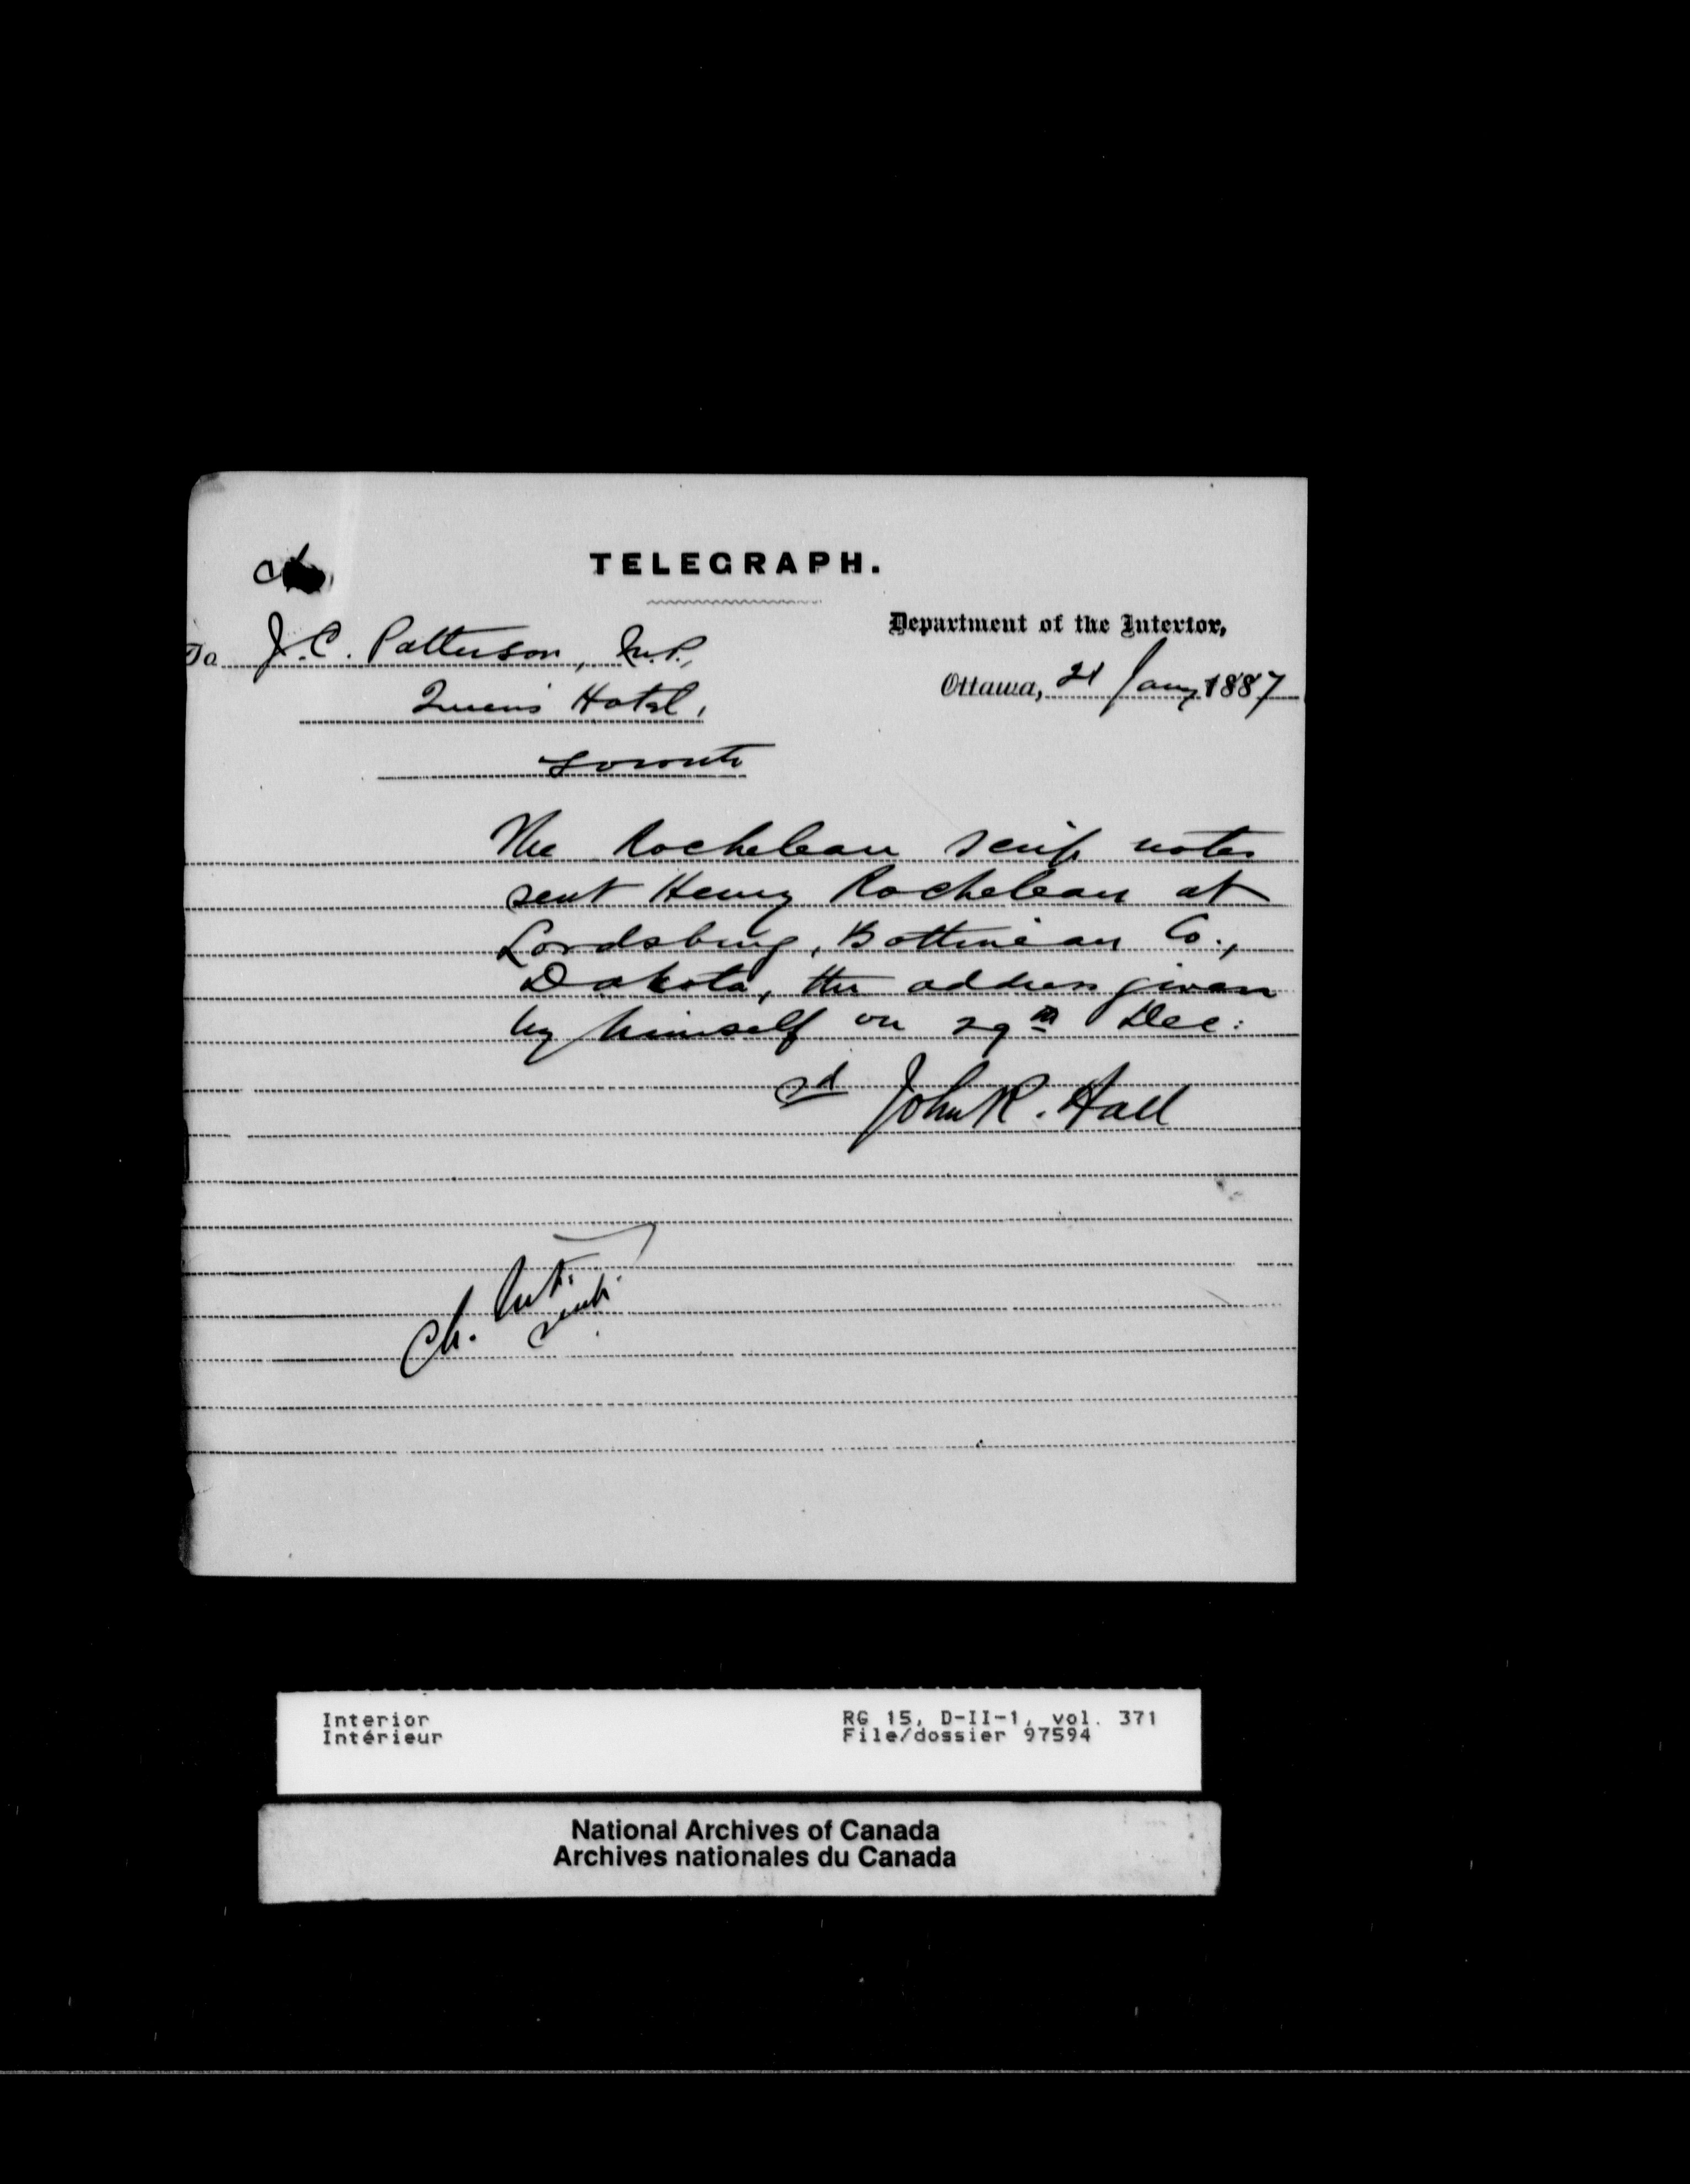 TELEGRAPH.
Department of the Interior,
To J. C. Patterson, M.P.,
Ottawa, 21 Jany 1887
Queen's Hotel,
Toronto
The Rocheleau scrip notes
sent Henry Rocheleau at
Lordsburg, Bottineau Co.,
Dakota, the address given
by himself on 29th Dec:
sd John R. Hall
Ch. Int.
Interior
Intérieur
RG 15, D-II-1, vol. 371
File/dossier 97594
National Archives of Canada
Archives nationales du Canada